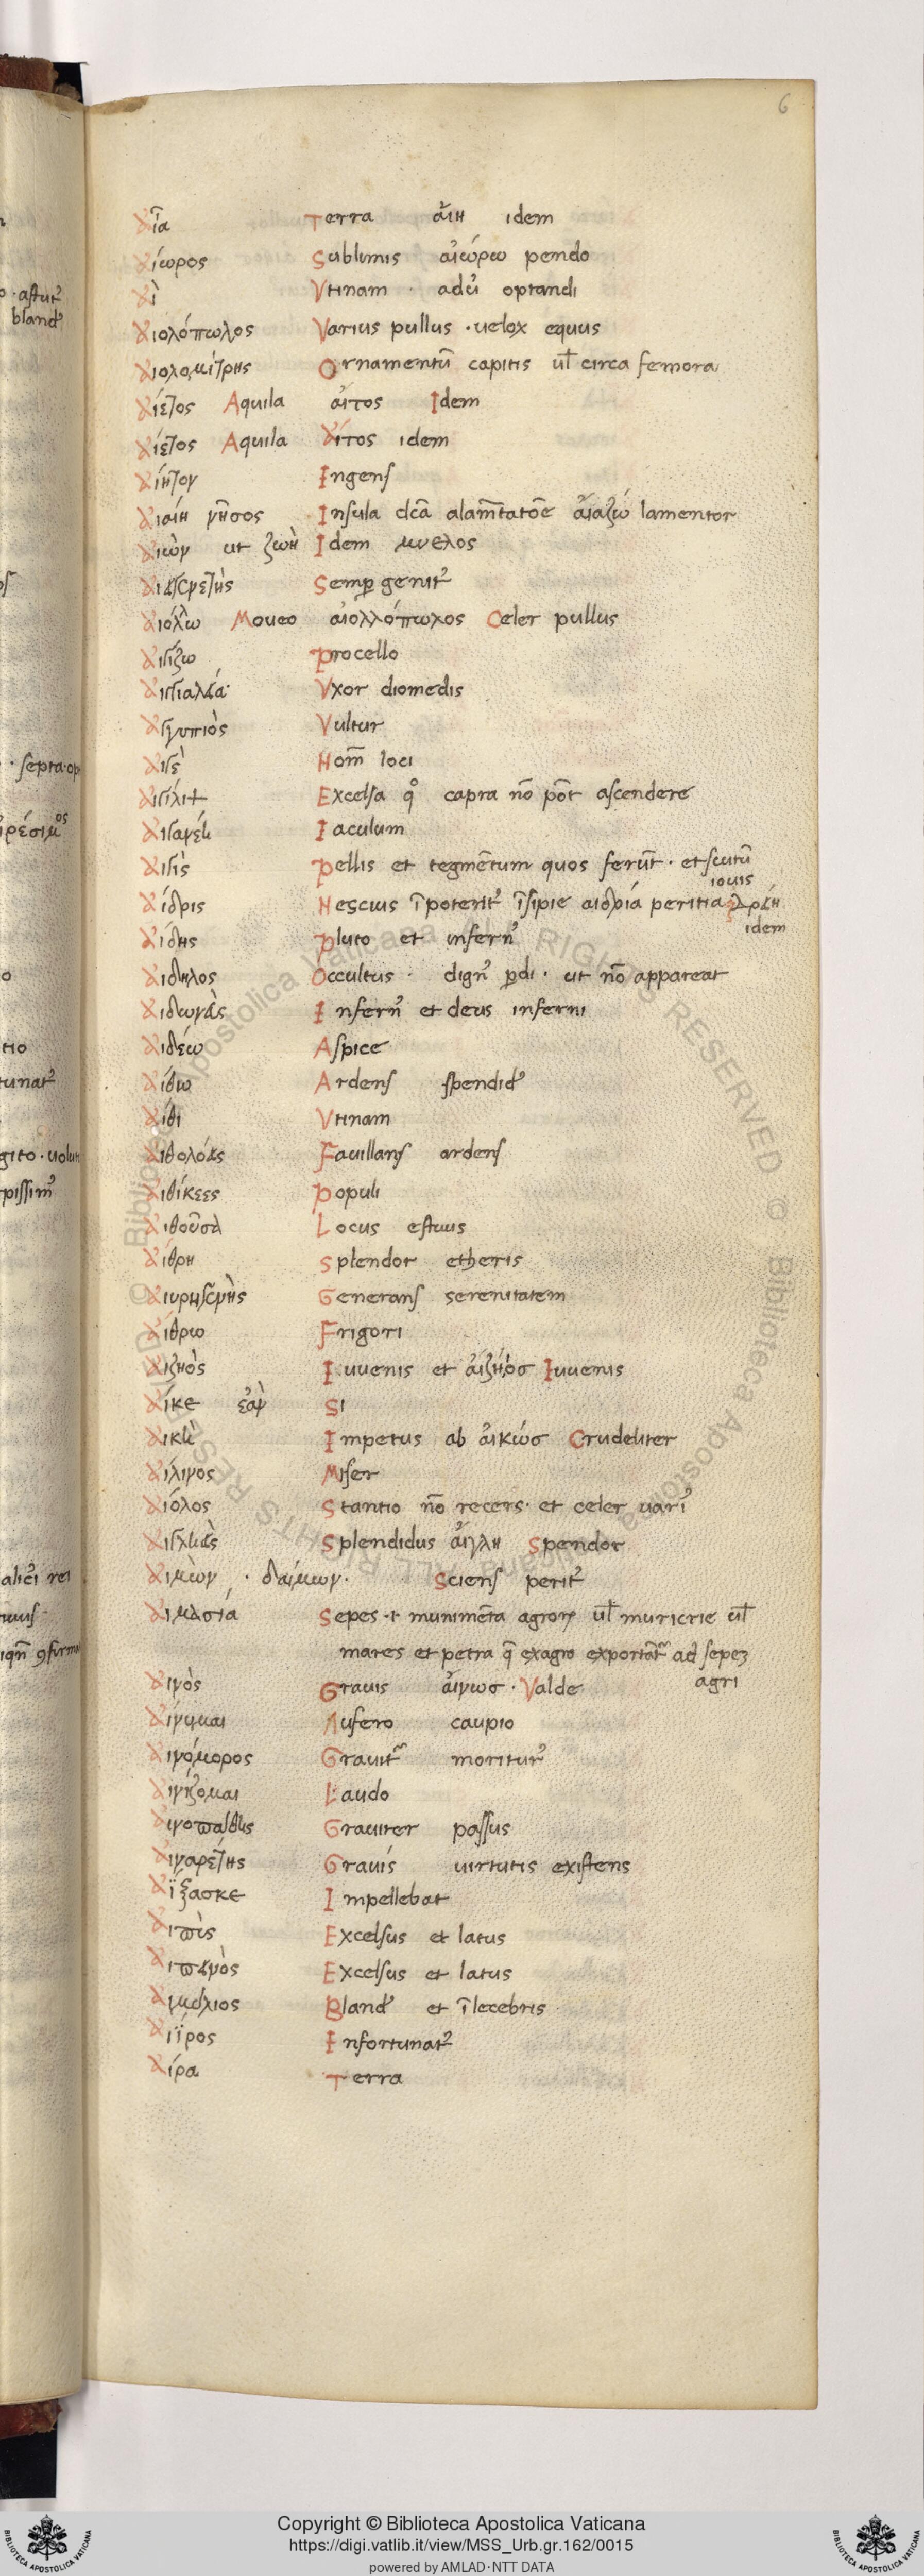 6
αἶα Terra ἄιη idem
αίωρος Sublimis αἰωρέω pendo
αἲ Vtinam · adũ optandi
αἰολόπωλος Varius pullus · uelox equus
αἰολομίτρης Ornamentũ capitis ul̃ circa femora
αίετος Aquila ἀίτος Idem
αίετος Aquila ἀίτος idem
αίητον Ingens
αιαίη νῆσος Insula dcã alam̃tatõe ἀιαζώ lamentor
αιὼν ut ζωὴ Idem μυελος
Semp genit᾽
αιόλλω Moueo αἰολλόπωλος Celer pullus
αιγίζω Procello
αιγιαλεία Vxor diomedis
αιγυπιὸς Vultur
Nom̃ loci
αιγίλιψ Excelsa q̊ capra nõ põt ascendere
αιγανέη Iaculum
αιγὶς Pellis et tegmẽtum quos ferũt · et scutũ
iouis
αίδρις Nescius ĩpoterit᾽ ĩsipie αιδρία peritia
idem
αίδης Pluto et infern᾽
αιδηλος Occultus · dign᾽ pdi · ut nõ appareat
αιδωνὰς Infern᾽ et deus inferni
αιδέω Aspice
αίθω Ardens spendid᾽
αίθι Vtinam
Fauillans ardens
αιθίκεες Populi
αιθοῦσὰ Locus estuus
αίθρη Splendor etheris
Generans serenitatem
αίθρω Frigori
αιζηὸς Iuuenis et ἀιζήὸσ Iuuenis
αίκε ἐὰν Si
αικὴ Impetus ab ἀικώσ Crudeliter
αίλινος Miser
αιόλος Stantio nõ recers · et celer uari᾽
Splendidus ἄιγλη Spendor
αιμὼν · δαίμων · Sciens perit᾽
αιμασία Sepes · munimẽta agroꝝ ul̃ muricrie ul̃
mares et petra q̃ exagro exportãt᾽ ad sepez
agri
αινὸς Grauis ἀινωσ · Valde
αίνυμαι Aufero caupio
αινόμορος Grauit᾽ moritur᾽
αινίζομαι Laudo
αινοπαθὴς Grauiter passus
αιναρέτης Grauis uirtutis existens
αἴξασκε Impellebat
αιπὺς Excelsus et latus
αιπεινὸς Excelsus et latus
αιμύλιος Bland᾽ et ĩlecebris
αίϊρος Infortunat᾽
αίρα Terra
Copyright © Biblioteca Apostolica Vaticana
https://digi.vatlib.it/view/MSS_Urb.gr.162/0015
powered by AMLAD·NTT DATA